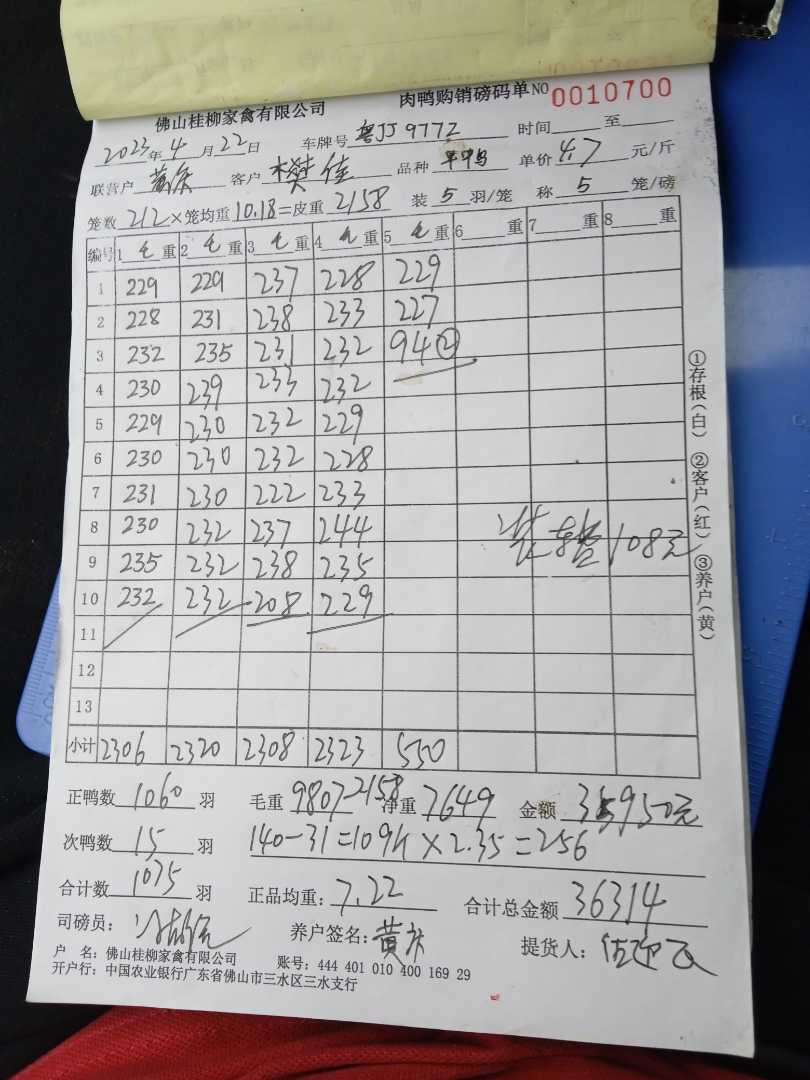 佛山桂柳家禽有限公司 肉鸭购销磅码单 NO 0010700
2023年4月22日 车牌号粤JJ9772 时间 至
联营户黄庆 客户樊佳 品种 单价4.7元/斤
笼数212×笼均重10.18=皮重2158 装5羽/笼 称5笼/磅
编号 1毛重 2毛重 3毛重 4毛重 5毛重 6重 7重 8重
1 229 229 237 228 229
2 228 231 238 233 227
3 232 235 231 232 94②
4 230 239 233 232
5 229 230 232 229
6 230 230 232 228
7 231 230 222 233
8 230 232 237 244
9 235 232 238 235
10 232 232 208 229
11
12
13
小计 2306 2320 2308 2323 550
装猪108元
①存根(白) ②客户(红) ③养户(黄)
正鸭数1060羽 毛重9807-2158 净重7649 金额35950元
次鸭数15羽 140-31=109斤×2.35=256
合计数1075羽 正品均重:7.22 合计总金额36314
司磅员: 养户签名:黄庆 提货人:
户 名:佛山桂柳家禽有限公司 账号:444 401 010 400 169 29
开户行:中国农业银行广东省佛山市三水区三水支行